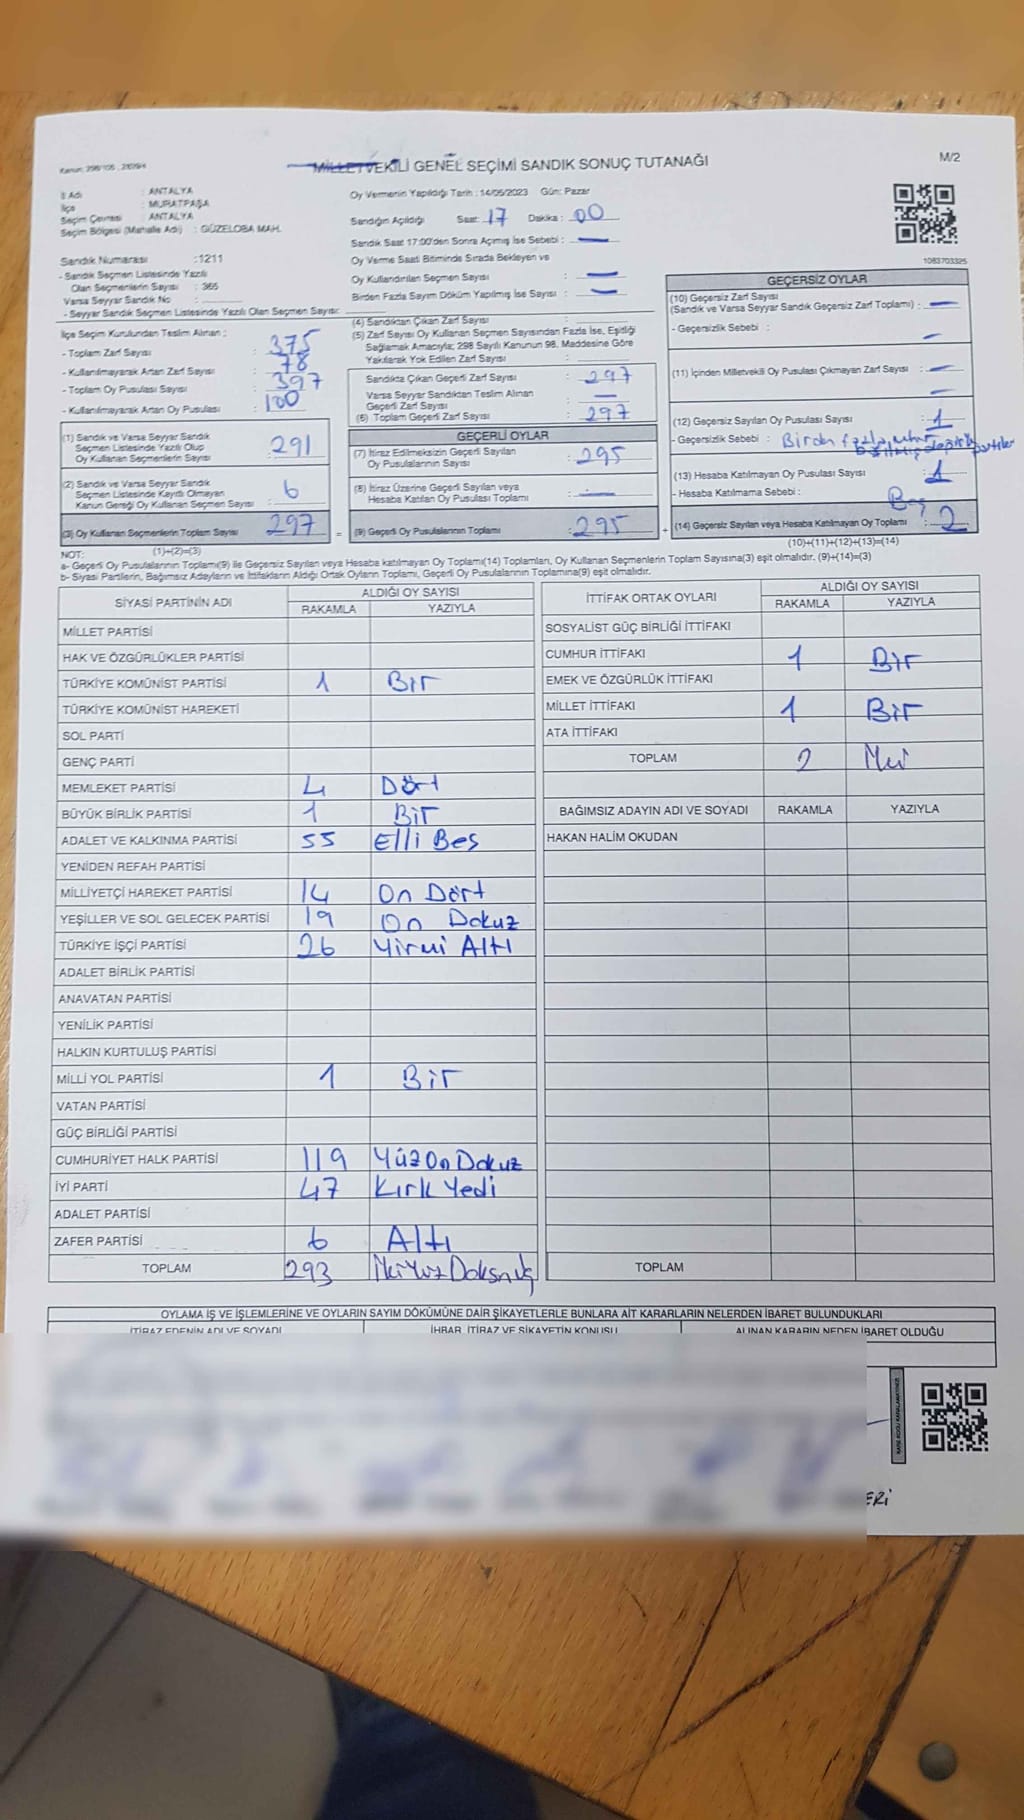 Kanun: 298/105, 2839/4
MİLLETVEKİLİ GENEL SEÇİMİ SANDIK SONUÇ TUTANAĞI
M/2
İl Adı : ANTALYA
İlçe : MURATPAŞA
Seçim Çevresi : ANTALYA
Seçim Bölgesi (Mahalle Adı) : GÜZELOBA MAH.
Sandık Numarası :1211
- Sandık Seçmen Listesinde Yazılı
Olan Seçmenlerin Sayısı : 365
Varsa Seyyar Sandık No :
- Seyyar Sandık Seçmen Listesinde Yazılı Olan Seçmen Sayısı:
Oy Vermenin Yapıldığı Tarih : 14/05/2023 Gün: Pazar
Sandığın Açıldığı Saat: 17 Dakika : 00
Sandık Saat 17:00'den Sonra Açılmış İse Sebebi : —
Oy Verme Saati Bitiminde Sırada Bekleyen ve
Oy Kullandırılan Seçmen Sayısı : —
Birden Fazla Sayım Döküm Yapılmış İse Sayısı : —
1083703325
İlçe Seçim Kurulundan Teslim Alınan ;
- Toplam Zarf Sayısı : 375
- Kullanılmayarak Artan Zarf Sayısı : 78
- Toplam Oy Pusulası Sayısı : 397
- Kullanılmayarak Artan Oy Pusulası : 100
(1) Sandık ve Varsa Seyyar Sandık
Seçmen Listesinde Yazılı Olup
Oy Kullanan Seçmenlerin Sayısı : 291
(2) Sandık ve Varsa Seyyar Sandık
Seçmen Listesinde Kayıtlı Olmayan
Kanun Gereği Oy Kullanan Seçmen Sayısı : 6
(3) Oy Kullanan Seçmenlerin Toplam Sayısı : 297
(1)+(2)=(3)
(4) Sandıktan Çıkan Zarf Sayısı :
(5) Zarf Sayısı Oy Kullanan Seçmen Sayısından Fazla İse, Eşitliği
Sağlamak Amacıyla; 298 Sayılı Kanunun 98. Maddesine Göre
Yakılarak Yok Edilen Zarf Sayısı :
Sandıkta Çıkan Geçerli Zarf Sayısı : 297
Varsa Seyyar Sandıktan Teslim Alınan
Geçerli Zarf Sayısı : —
(6) Toplam Geçerli Zarf Sayısı : 297
GEÇERLİ OYLAR
(7) İtiraz Edilmeksizin Geçerli Sayılan
Oy Pusulalarının Sayısı : 295
(8) İtiraz Üzerine Geçerli Sayılan veya
Hesaba Katılan Oy Pusulası Toplamı : —
= (9) Geçerli Oy Pusulalarının Toplamı : 295 +
GEÇERSİZ OYLAR
(10) Geçersiz Zarf Sayısı
(Sandık ve Varsa Seyyar Sandık Geçersiz Zarf Toplamı) : —
- Geçersizlik Sebebi : —
(11) İçinden Milletvekili Oy Pusulası Çıkmayan Zarf Sayısı : —
(12) Geçersiz Sayılan Oy Pusulası Sayısı : 1
- Geçersizlik Sebebi : Birden fazla
(13) Hesaba Katılmayan Oy Pusulası Sayısı : 1
- Hesaba Katılmama Sebebi : Boş
(14) Geçersiz Sayılan veya Hesaba Katılmayan Oy Toplamı : 2
(10)+(11)+(12)+(13)=(14)
NOT:
a- Geçerli Oy Pusulalarının Toplamı(9) ile Geçersiz Sayılan veya Hesaba katılmayan Oy Toplamı(14) Toplamları, Oy Kullanan Seçmenlerin Toplam Sayısına(3) eşit olmalıdır. (9)+(14)=(3)
b- Siyasi Partilerin, Bağımsız Adayların ve İttifakların Aldığı Ortak Oyların Toplamı, Geçerli Oy Pusulalarının Toplamına(9) eşit olmalıdır.
SİYASİ PARTİNİN ADI ALDIĞI OY SAYISI
RAKAMLA YAZIYLA
MİLLET PARTİSİ
HAK VE ÖZGÜRLÜKLER PARTİSİ
TÜRKİYE KOMÜNİST PARTİSİ 1 Bir
TÜRKİYE KOMÜNİST HAREKETİ
SOL PARTİ
GENÇ PARTİ
MEMLEKET PARTİSİ 4 Dört
BÜYÜK BİRLİK PARTİSİ 1 Bir
ADALET VE KALKINMA PARTİSİ 55 Elli Beş
YENİDEN REFAH PARTİSİ
MİLLİYETÇİ HAREKET PARTİSİ 14 On Dört
YEŞİLLER VE SOL GELECEK PARTİSİ 19 On Dokuz
TÜRKİYE İŞÇİ PARTİSİ 26 Yirmi Altı
ADALET BİRLİK PARTİSİ
ANAVATAN PARTİSİ
YENİLİK PARTİSİ
HALKIN KURTULUŞ PARTİSİ
MİLLİ YOL PARTİSİ 1 Bir
VATAN PARTİSİ
GÜÇ BİRLİĞİ PARTİSİ
CUMHURİYET HALK PARTİSİ 119 Yüz On Dokuz
İYİ PARTİ 47 Kırk Yedi
ADALET PARTİSİ
ZAFER PARTİSİ 6 Altı
TOPLAM 293 İkiYüz Doksnüç
İTTİFAK ORTAK OYLARI ALDIĞI OY SAYISI
RAKAMLA YAZIYLA
SOSYALİST GÜÇ BİRLİĞİ İTTİFAKI
CUMHUR İTTİFAKI 1 Bir
EMEK VE ÖZGÜRLÜK İTTİFAKI
MİLLET İTTİFAKI 1 Bir
ATA İTTİFAKI
TOPLAM 2 İki
BAĞIMSIZ ADAYIN ADI VE SOYADI RAKAMLA YAZIYLA
HAKAN HALİM OKUDAN
TOPLAM
OYLAMA İŞ VE İŞLEMLERİNE VE OYLARIN SAYIM DÖKÜMÜNE DAİR ŞİKAYETLERLE BUNLARA AİT KARARLARIN NELERDEN İBARET BULUNDUKLARI
İTİRAZ EDENİN ADI VE SOYADI İHBAR, İTİRAZ VE ŞİKAYETİN KONUSU ALINAN KARARIN NEDEN İBARET OLDUĞU
ERİ